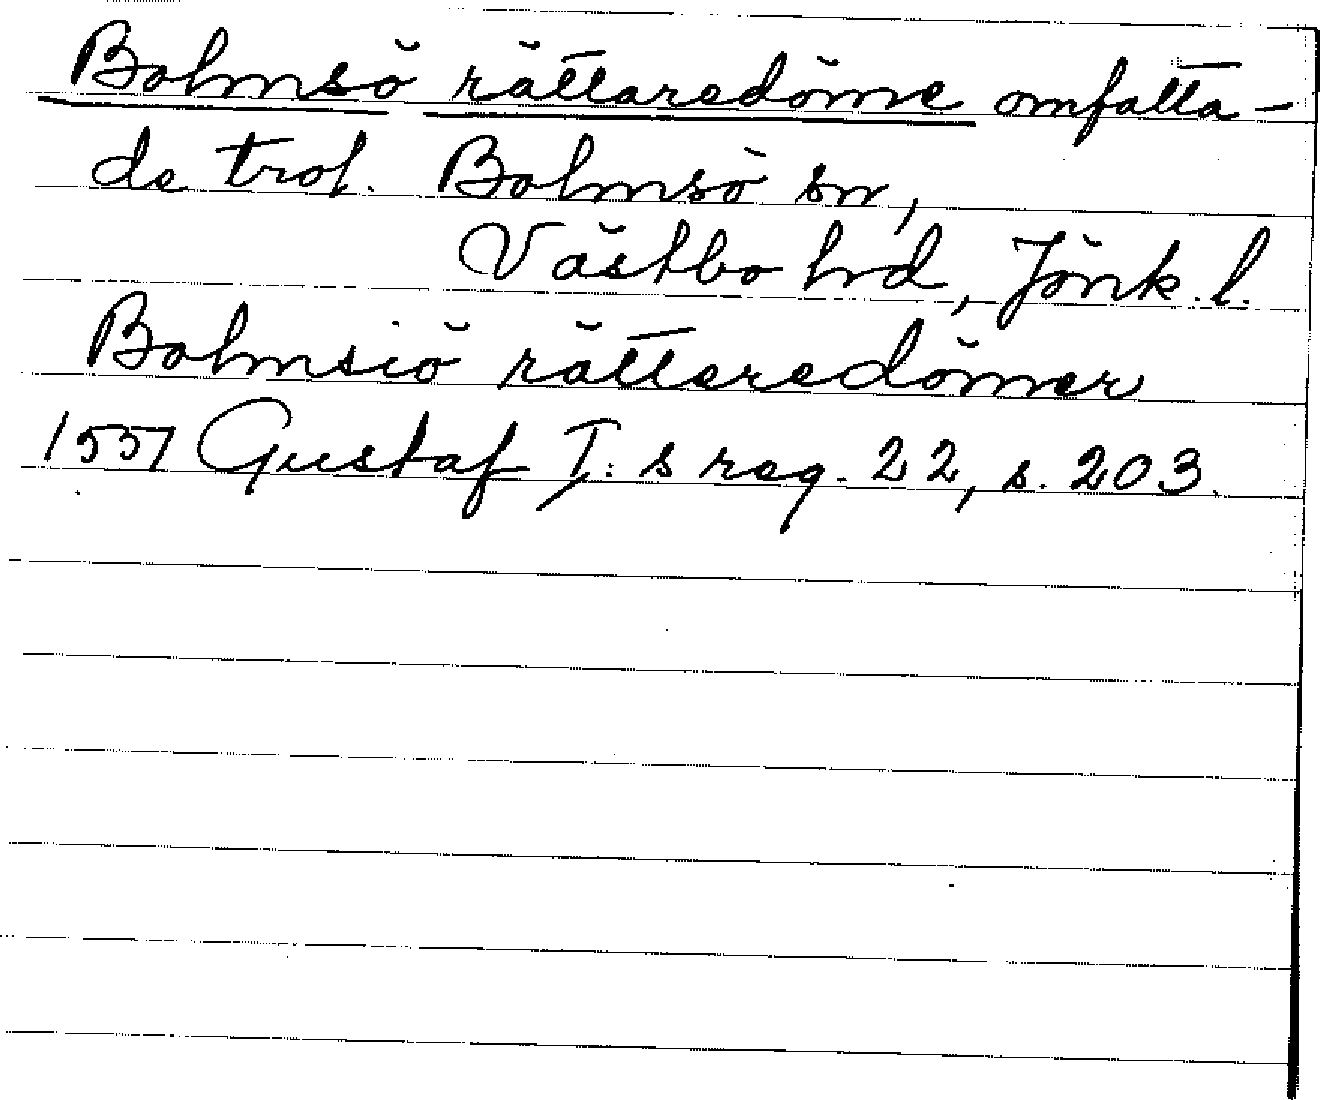 Bolmsö rättaredöme omfatta-
de trol. Bolmsö sn,
Västbo hd, Jönk. l.
Bolmsiö rättaredömer
1557 Gustaf I: s reg. 22, s. 203.